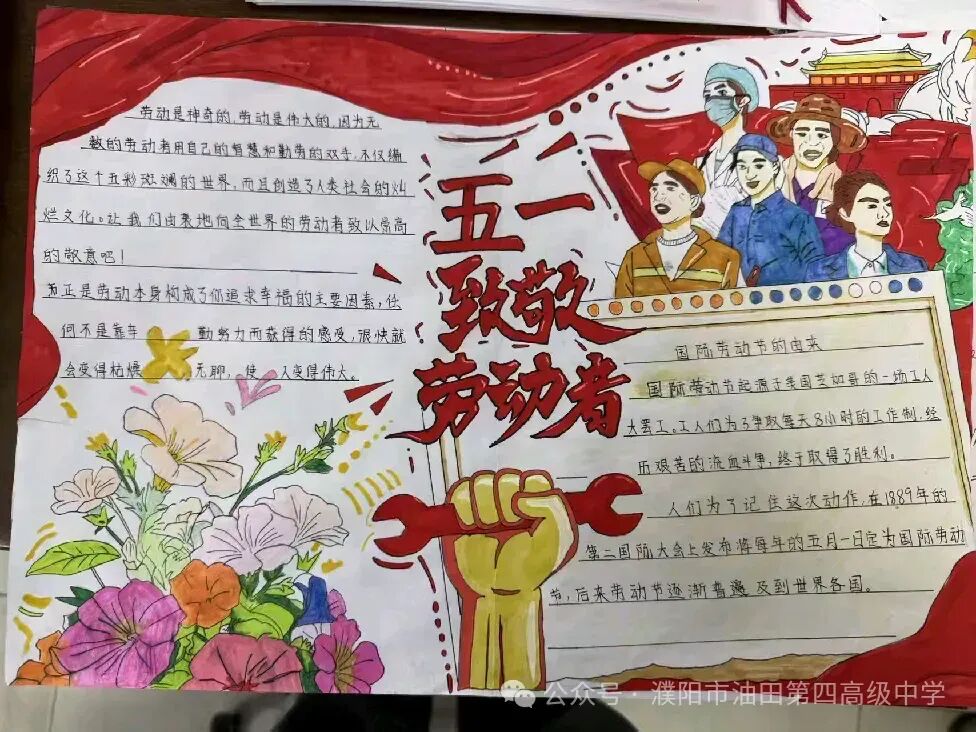 劳动是神奇的,劳动是伟大的,因为无
数的劳动者用自己的智慧和勤劳的双手,不仅编
织了这个五彩斑斓的世界,而且创造了人类社会的灿
烂文化。让我们由衷地向全世界的劳动者致以崇高
的敬意吧!
而正是劳动本身构成了你追求幸福的主要因素,任
何不是靠辛 勤努力而获得的感受,很快就
会变得枯燥 无聊, 使 人变得伟大。
五一
致敬
劳动者
国际劳动节的由来
国际劳动节起源于美国芝加哥的一场工人
大罢工。工人们为了争取每天8小时的工作制,经
历艰苦的流血斗争,终于取得了胜利。
人们为了记住这次动作,在1889年的
第二国际大会上发布将每年的五月一日定为国际劳动
节,后来劳动节逐渐普遍及到世界各国。
公众号·濮阳市油田第四高级中学